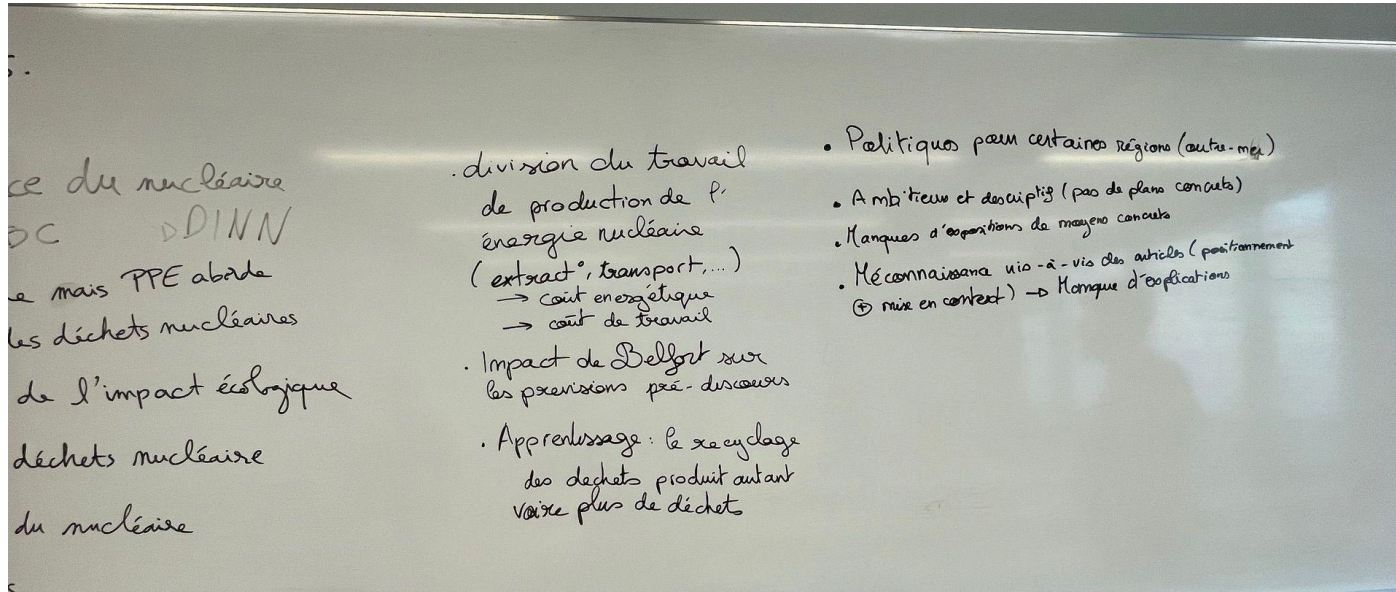 ce du nucléaire
DINN
mais PPE aborde
les déchets nucléaires
de l'impact écologique
déchets nucléaire
du nucléaire
. division du travail
de production de l'
énergie nucléaire
( extract°, transport, ...)
→ coût energétique
→ coût de travail
. Impact de Belfort sur
les previsions pré-discours
. Apprentissage : le recyclage
des dechets produit autant
voire plus de déchets
• Politiques pour certaines régions (outre-mer)
• Ambitieux et descriptif (pas de plans concrets)
• Manques d'expositions de moyens concrets
• Méconnaissance vis-à-vis des articles ( positionnement
⊕ mise en context) → Manque d'explications